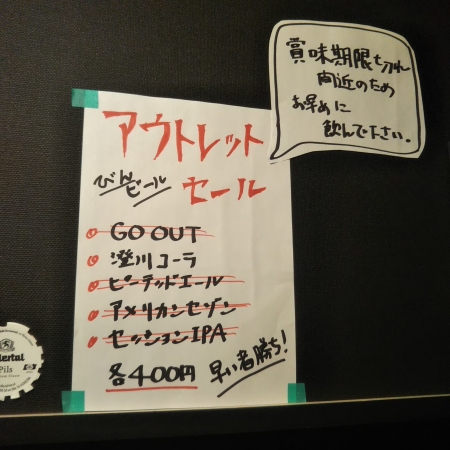 賞味期限切れ
間近のため
お早めに
飲んで下さい。
アウトレット
びんビール
セール
GO OUT
澄川コーラ
ピーテッドエール
アメリカンセゾン
セッションIPA
各400円
早い者勝ち!
Pils